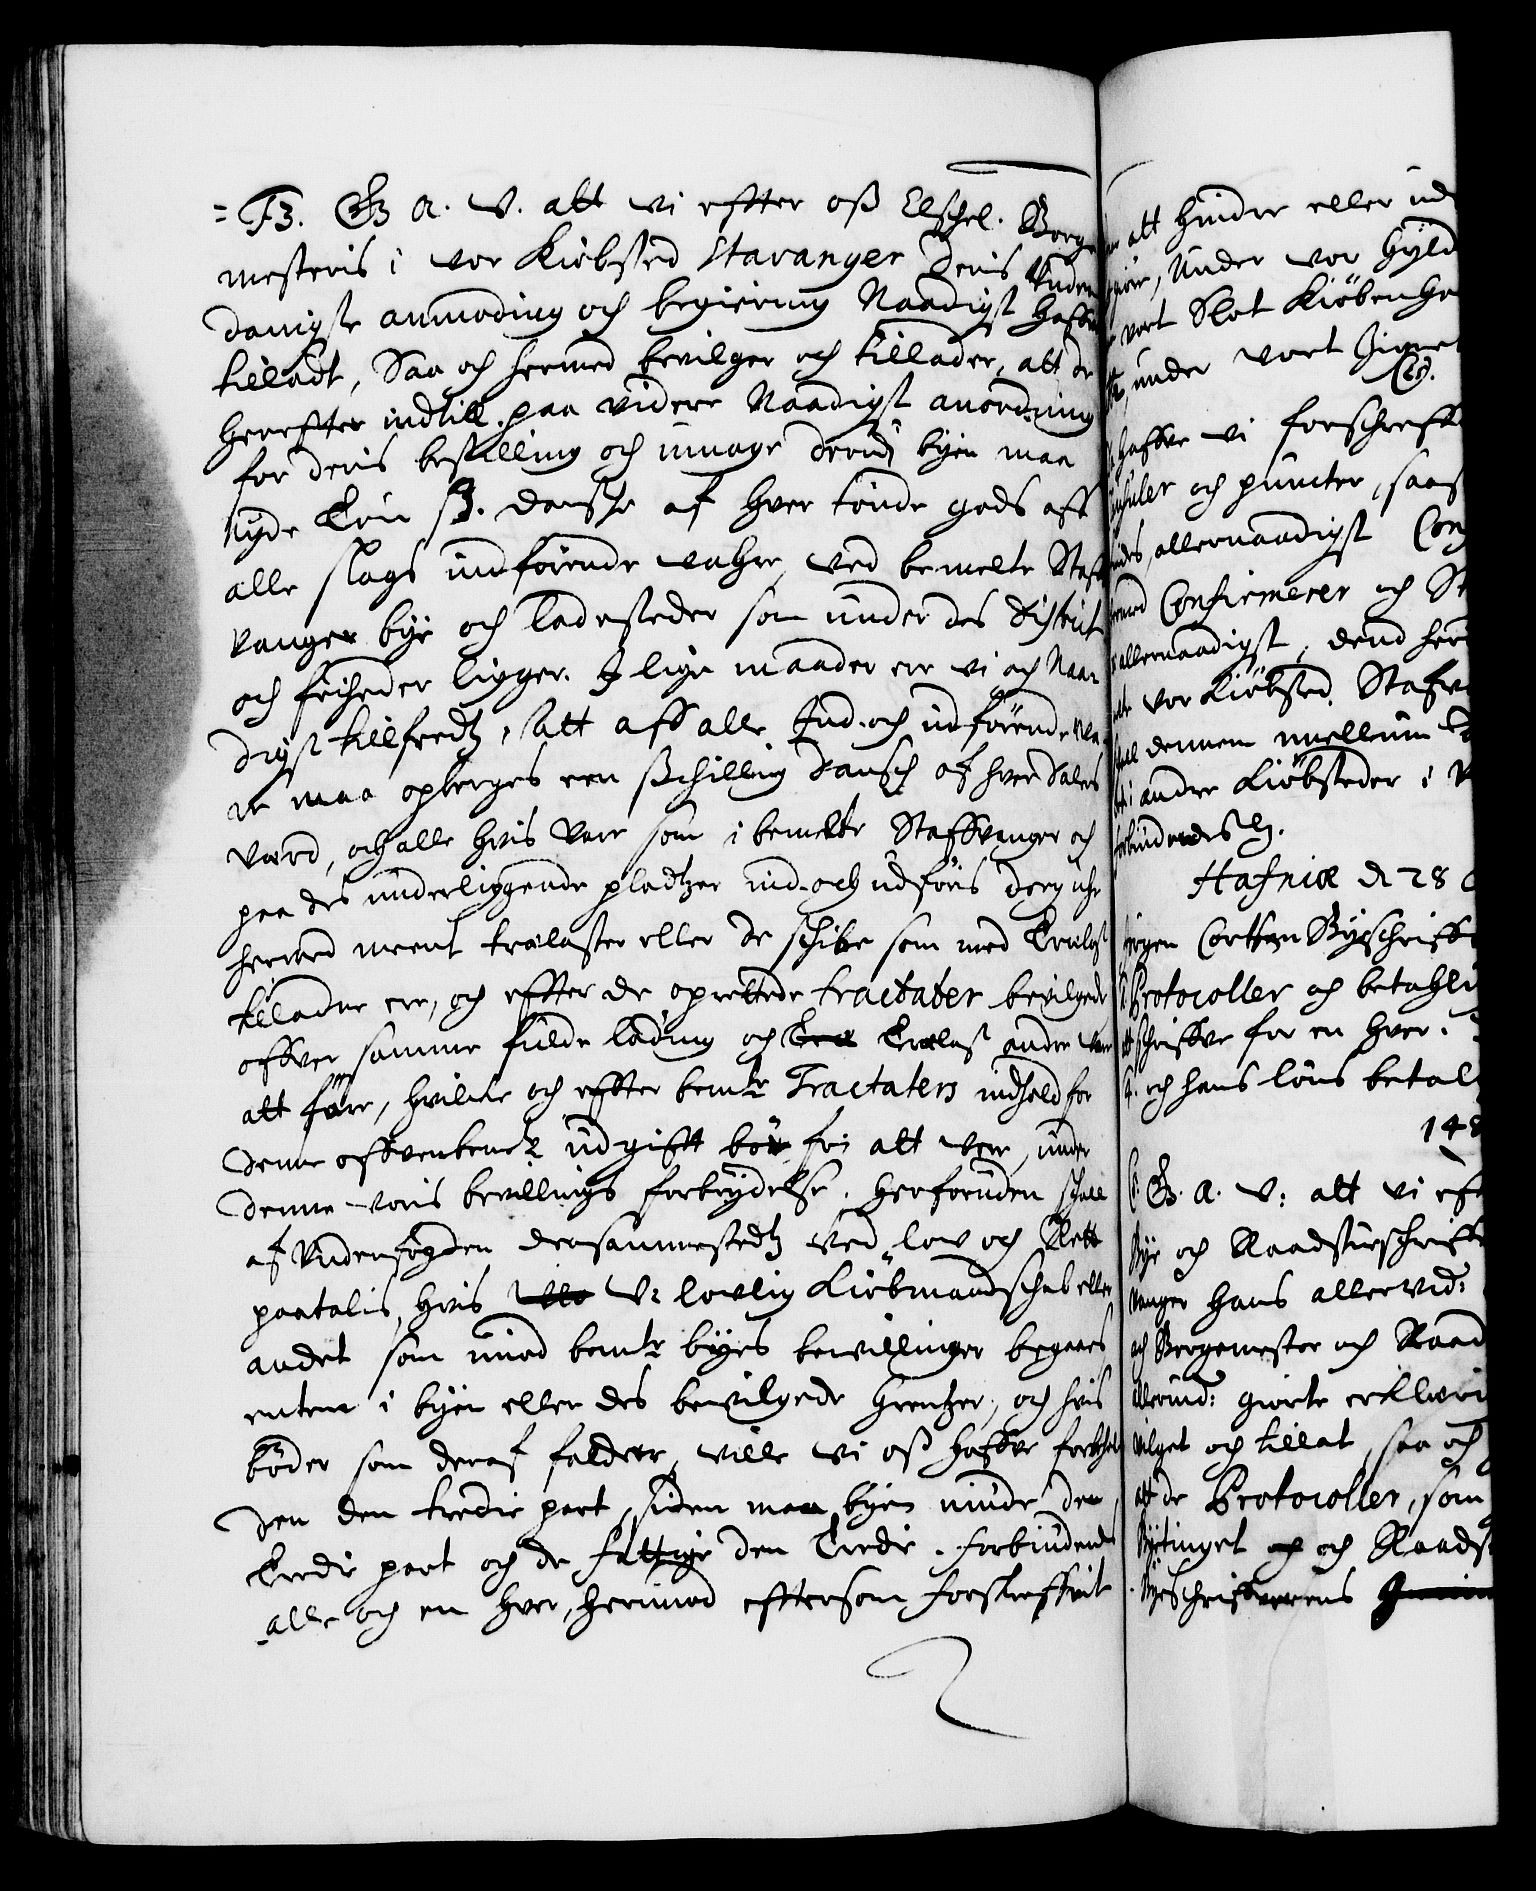 = F3. G. A. V. att vi effter oß Elschel. Borge
mesteris i vor Kiöbsted Stavanger deris Unden
danigste anmoding och begiering Naadigst haffue
tilladt, Saa och hermed bevilger och tillader, att de
herefter indtill paa videre Naadigst anordning
for deris bestilling och umage derudi byen maa
nyde Toe ß. danske af hver tönde gods aff
alle slags indförende vahre, ved bemelte Staff
vanger bye och ladesteder som under des district
och friheder ligger. I lige maader ere vi och Naa
digst tillfredtz, Att aff alle Ind. och udförende va
re maa opberges een ßchilling dansch af hver dalers
værd, och alle hvis vare som i bemelte Staffvanger och
paa des underliggende pladtzer ind. och udföris dog iche
hermed meent trælaster eller de schibe som med Trælast
tilladne ere, och effter de oprettede tractater bevilgede
offver samme fulde lading och Trælast andre vare
att före, hvilcke och effter bemte Tractaters indhold for
denne offvenbemte udgifft bör fri att vere, under
denne voris bevillings fortydelse. Herforuden schall
af Underfogden dersammestedtz ved lov och Rett
paatalis, hvis u-lovlig Kiöbmandschab eller
andet som imod bemte byes bevillinger begaaes
enten i byen eller des bevilgede Grentzer, och hvis
böder som deraf falder, ville vi oß haffve forbehol
den den tredie part, siden maa byen niude den
Tredie part och de fattige den Tredie. forbiudendes
alle och en hver, herimod efftersom forskreffvit

att hindre eller ud
giöre, Under vor Hyld
vort Slot Kiöbenha
under vort Signet
haffve vi forschreff
och puncter, saa
allernaadigst Con
Confirmerer och St
allernaadigst, dend her
vor Kiöbsted Stafv
dennem imellum
andre Kiöbsteder i
forbiudendis etz.
Hafniæ d 28
Jörgen Cortsen Byeschriff
Protocoller och betahli
schriffve for en hver.
och hans löns betal
148
G. A. V: att vi ef
Bye och Raadstueschriff
vanger hans allervnd:
och Borgemester och Raad
allerund: giorte erklæri
vilget och tillat, saa och
att de Protocoller, som
Bytinget och och Raadst
Byeschriffverens